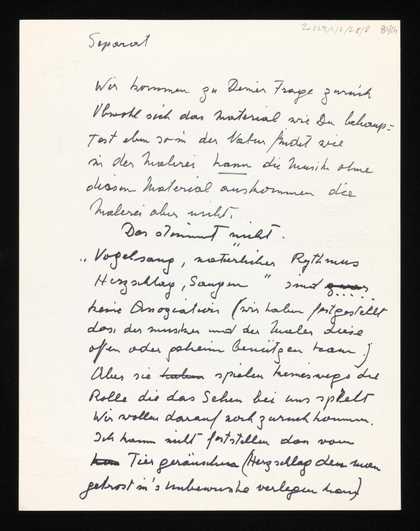 Separat
Wir kommen zu Deiner Frage zurück
Obwohl sich das Material wie Du behaup=
test eben so in der Natur findet wie
in der Malerei kann die Musik ohne
diesen Material auskommen die
Malerei aber nicht.
Das stimmt nicht.
„Vogelsang, natürlicher Rythmus
Herzschlag, Saugen" sind
keine Assoziation (wir haben festgestellt
dass der Musiker und der Maler diese
offen oder geheim benützen kann)
Aber sie haben spielen keineswegs die
Rolle die das Sehen bei uns spielt
Wir wollen darauf noch zurück kommen.
Ich kann nicht feststellen dass vom
Tiergeräuschen (Herzschlag den man
getrost in's Unbewusste verlegen kann)